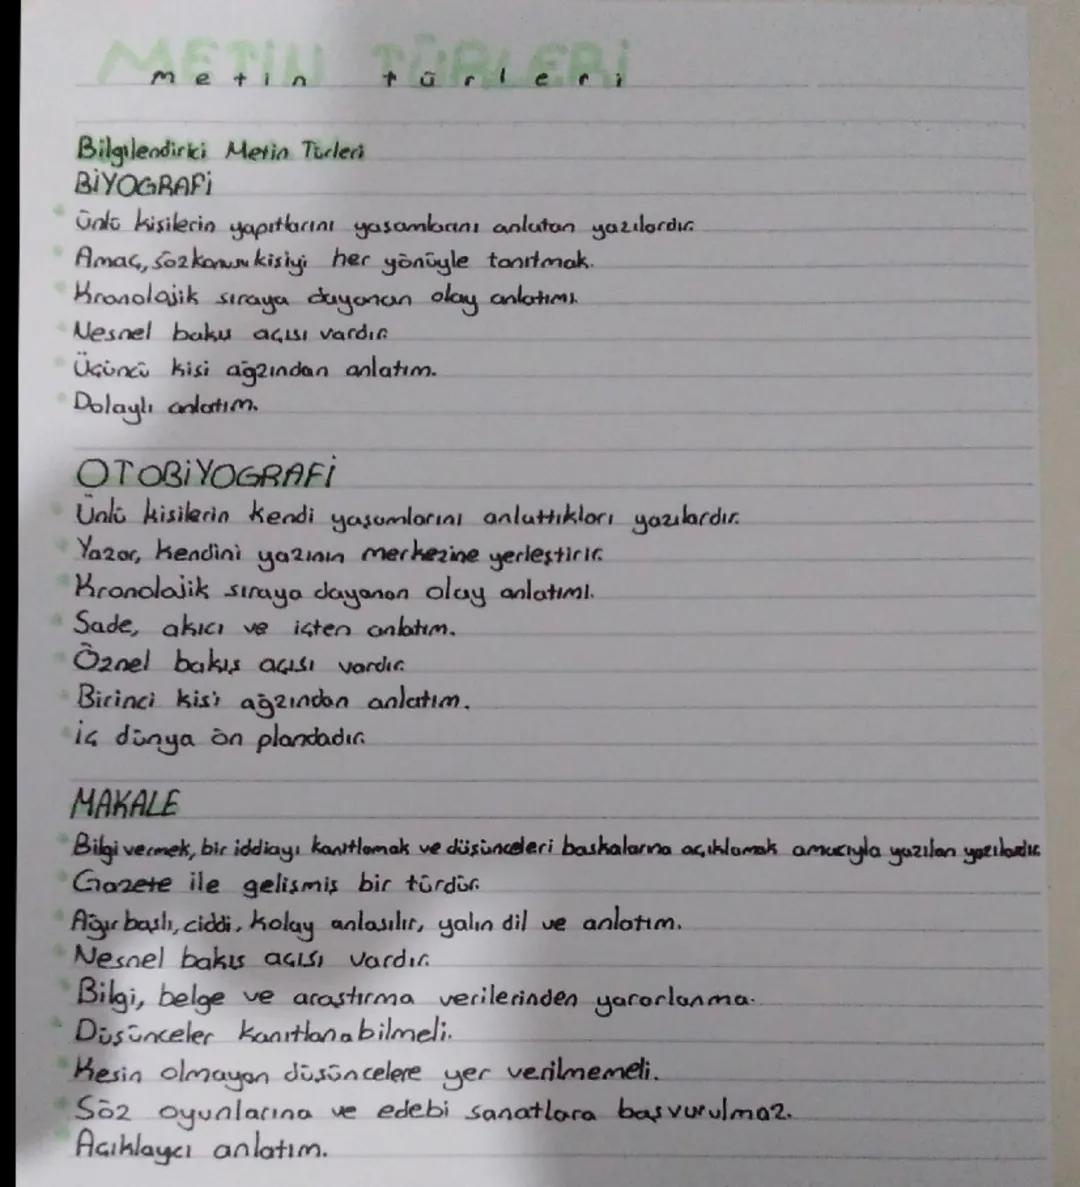 METİN TÜRLERİ
metin türleri
Bilgilendirici Metin Türleri
BİYOGRAFİ
Ünlü kişilerin yapıtlarını yaşamlarını anlatan yazılardır.
Amaç, söz konusu kişiyi her yönüyle tanıtmak.
Kronolojik sıraya dayanan olay anlatımı.
Nesnel bakış açısı vardır.
Üçüncü kişi ağzından anlatım.
Dolaylı anlatım.
OTOBİYOGRAFİ
Ünlü kişilerin kendi yaşamlarını anlattıkları yazılardır.
Yazar, kendini yazının merkezine yerleştirir.
Kronolojik sıraya dayanan olay anlatımı.
Sade, akıcı ve içten anlatım.
Öznel bakış açısı vardır.
Birinci kişi ağzından anlatım.
İç dünya ön plandadır.
MAKALE
Bilgi vermek, bir iddiayı kanıtlamak ve düşünceleri başkalarına açıklamak amacıyla yazılan yazılardır.
Gazete ile gelişmiş bir türdür.
Ağır başlı, ciddi, kolay anlaşılır, yalın dil ve anlatım.
Nesnel bakış açısı vardır.
Bilgi, belge ve araştırma verilerinden yararlanma.
Düşünceler kanıtlanabilmeli.
Kesin olmayan düşüncelere yer verilmemeli.
Söz oyunlarına ve edebi sanatlara başvurulmaz.
Açıklayıcı anlatım.